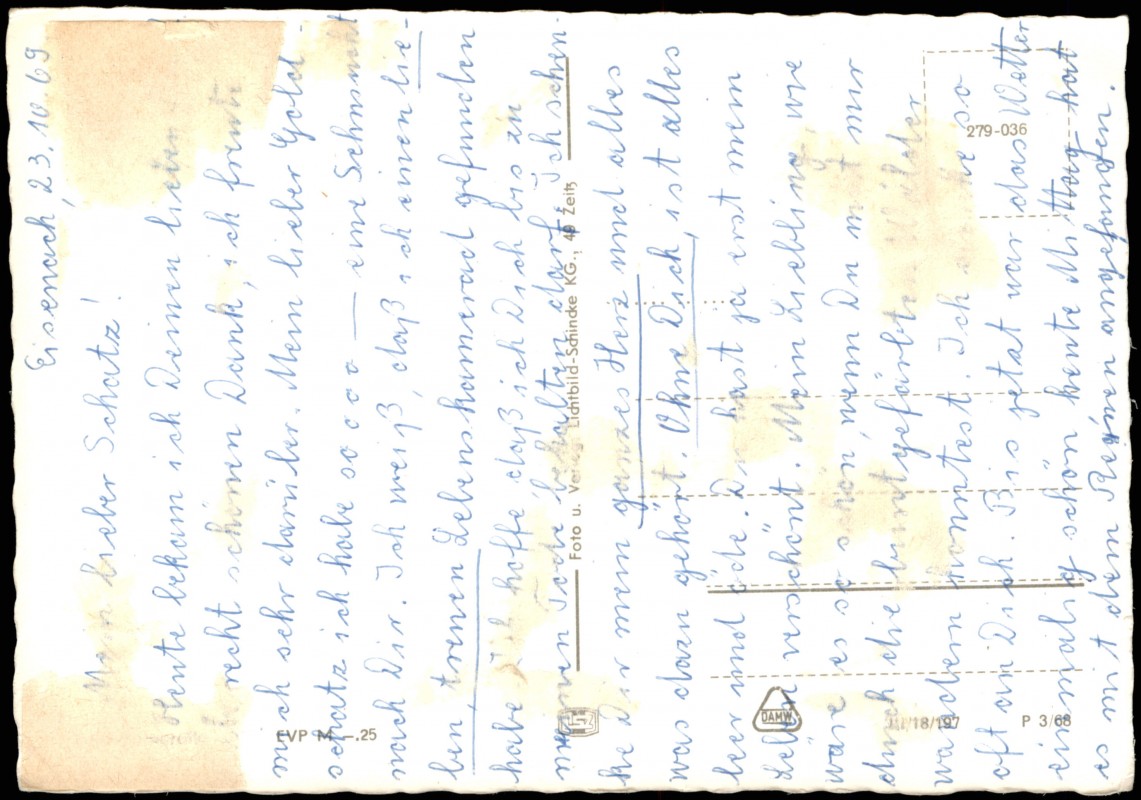 Eisenach, 23.10.69
Mein lieber Schatz!
Heute bekam ich Deinen lieben
recht schönen Dank, ich freute
mich sehr darüber. Mein lieber Gold-
schatz ich habe so o o o — eine Sehnsucht
nach Dir. Ich weiß, daß ich einen lie-
ben, treuen Lebenskamerad gefunden
habe. Ich hoffe daß ich Dich bis zu
meinen Tode behalten darf. Ich schen-
ke Dir mein ganzes Herz und alles
was dazu gehört. Ohne Dich, ist alles
leer und öde. Du hast ja erst mein
Leben verschönt. Mein Liebling, wie
wäre es so schön, wenn Du mit mir
durch die bunt gefärbten Wälder
wandern könntest. Ich denke so
oft an Dich. Bis jetzt war das Wetter
einmalig schön heute Mittag hat
es mit dem Regnen angefangen.
EVP M –.25
Foto u. Verlag Lichtbild-Schincke KG., 49 Zeitz
279-036
DAMW
III/18/197
P 3/68